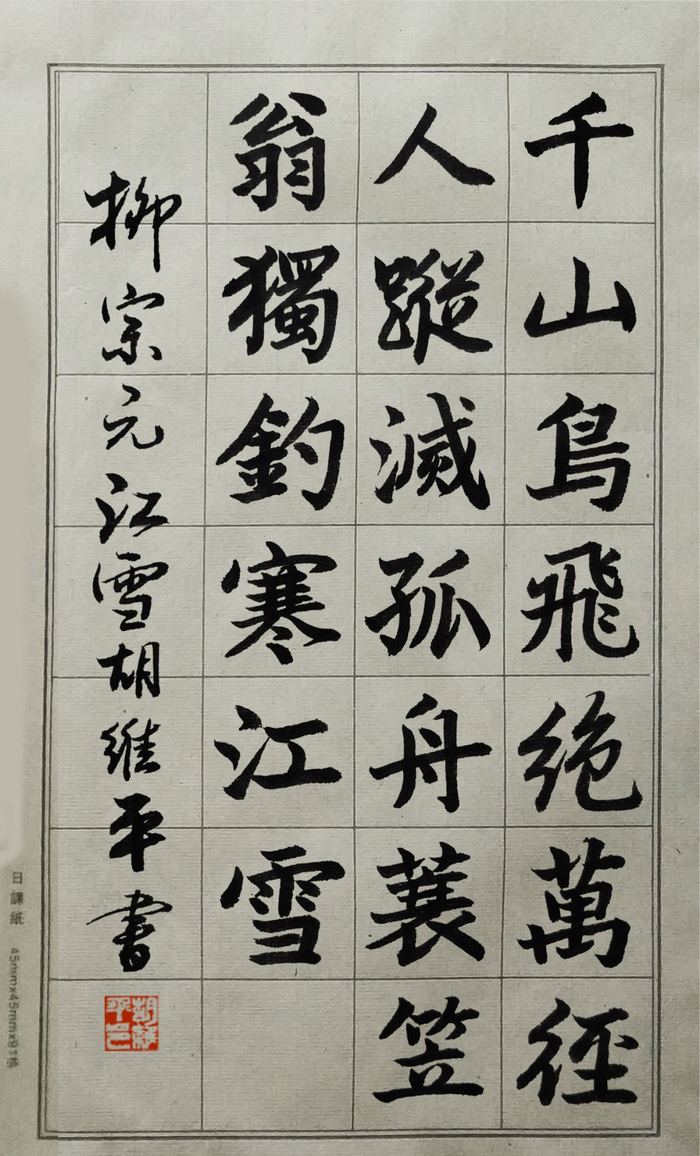 千山鳥飛絕萬徑
人蹤滅孤舟蓑笠
翁獨釣寒江雪
柳宗元江雪胡維平書
胡維平印
日課紙 45mmx45mmx91格